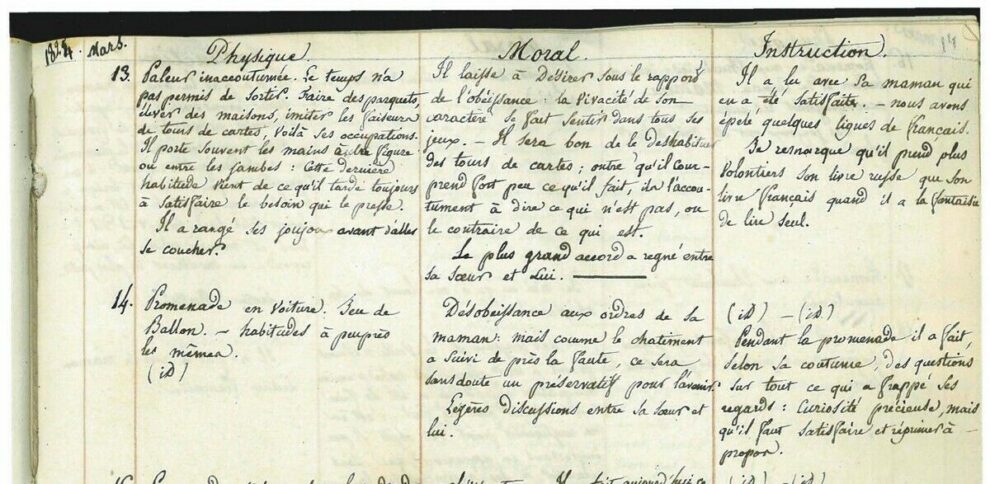 1824. Mars.
Physique
13. Paleur inaccoutumée. Le temps n'a
pas permis de sortir. Faire des parquets,
élever des maisons, imiter les faiseurs
de tours de cartes, voilà ses occupations.
Il porte souvent les mains à la figure
ou entre les jambes : Cette dernière
habitude vient de ce qu'il tarde toujours
à satisfaire le besoin qui le presse.
Il a rangé ses joujoux avant d'aller
se coucher.
Moral.
Il laisse à désirer sous le rapport
de l'obéissance : la vivacité de son
caractère se fait sentir dans tous ses
jeux. – Il sera bon de le deshabituer
des tours de cartes ; outre qu'il com-
prend fort peu ce qu'il fait, ils l'accou-
tument à dire ce qui n'est pas, ou
le contraire de ce qui est.
Le plus grand accord a regné entre
sa sœur et lui.
Instruction.
14
Il a lu avec sa maman qui
en a été satisfaite. – nous avons
épelé quelques lignes de français.
Je remarque qu'il prend plus
volontiers son livre russe que son
livre français quand il a la fantaisie
de lire seul.
14. Promenade en voiture. Jeu de
Ballon. – habitudes à peuprès
les mêmes.
(id)
Désobeissance aux ordres de sa
maman : mais comme le chatiment
a suivi de près la faute, ce sera
sans doute un préservatif pour l'avenir.
Legères discussions entre sa sœur et
lui.
(id) – (id)
Pendant la promenade il a fait,
selon sa coutume, des questions
sur tout ce qui a frappé ses
regards : Curiosité précieuse, mais
qu'il faut satisfaire et réprimer à
propos.
(id) – (id)